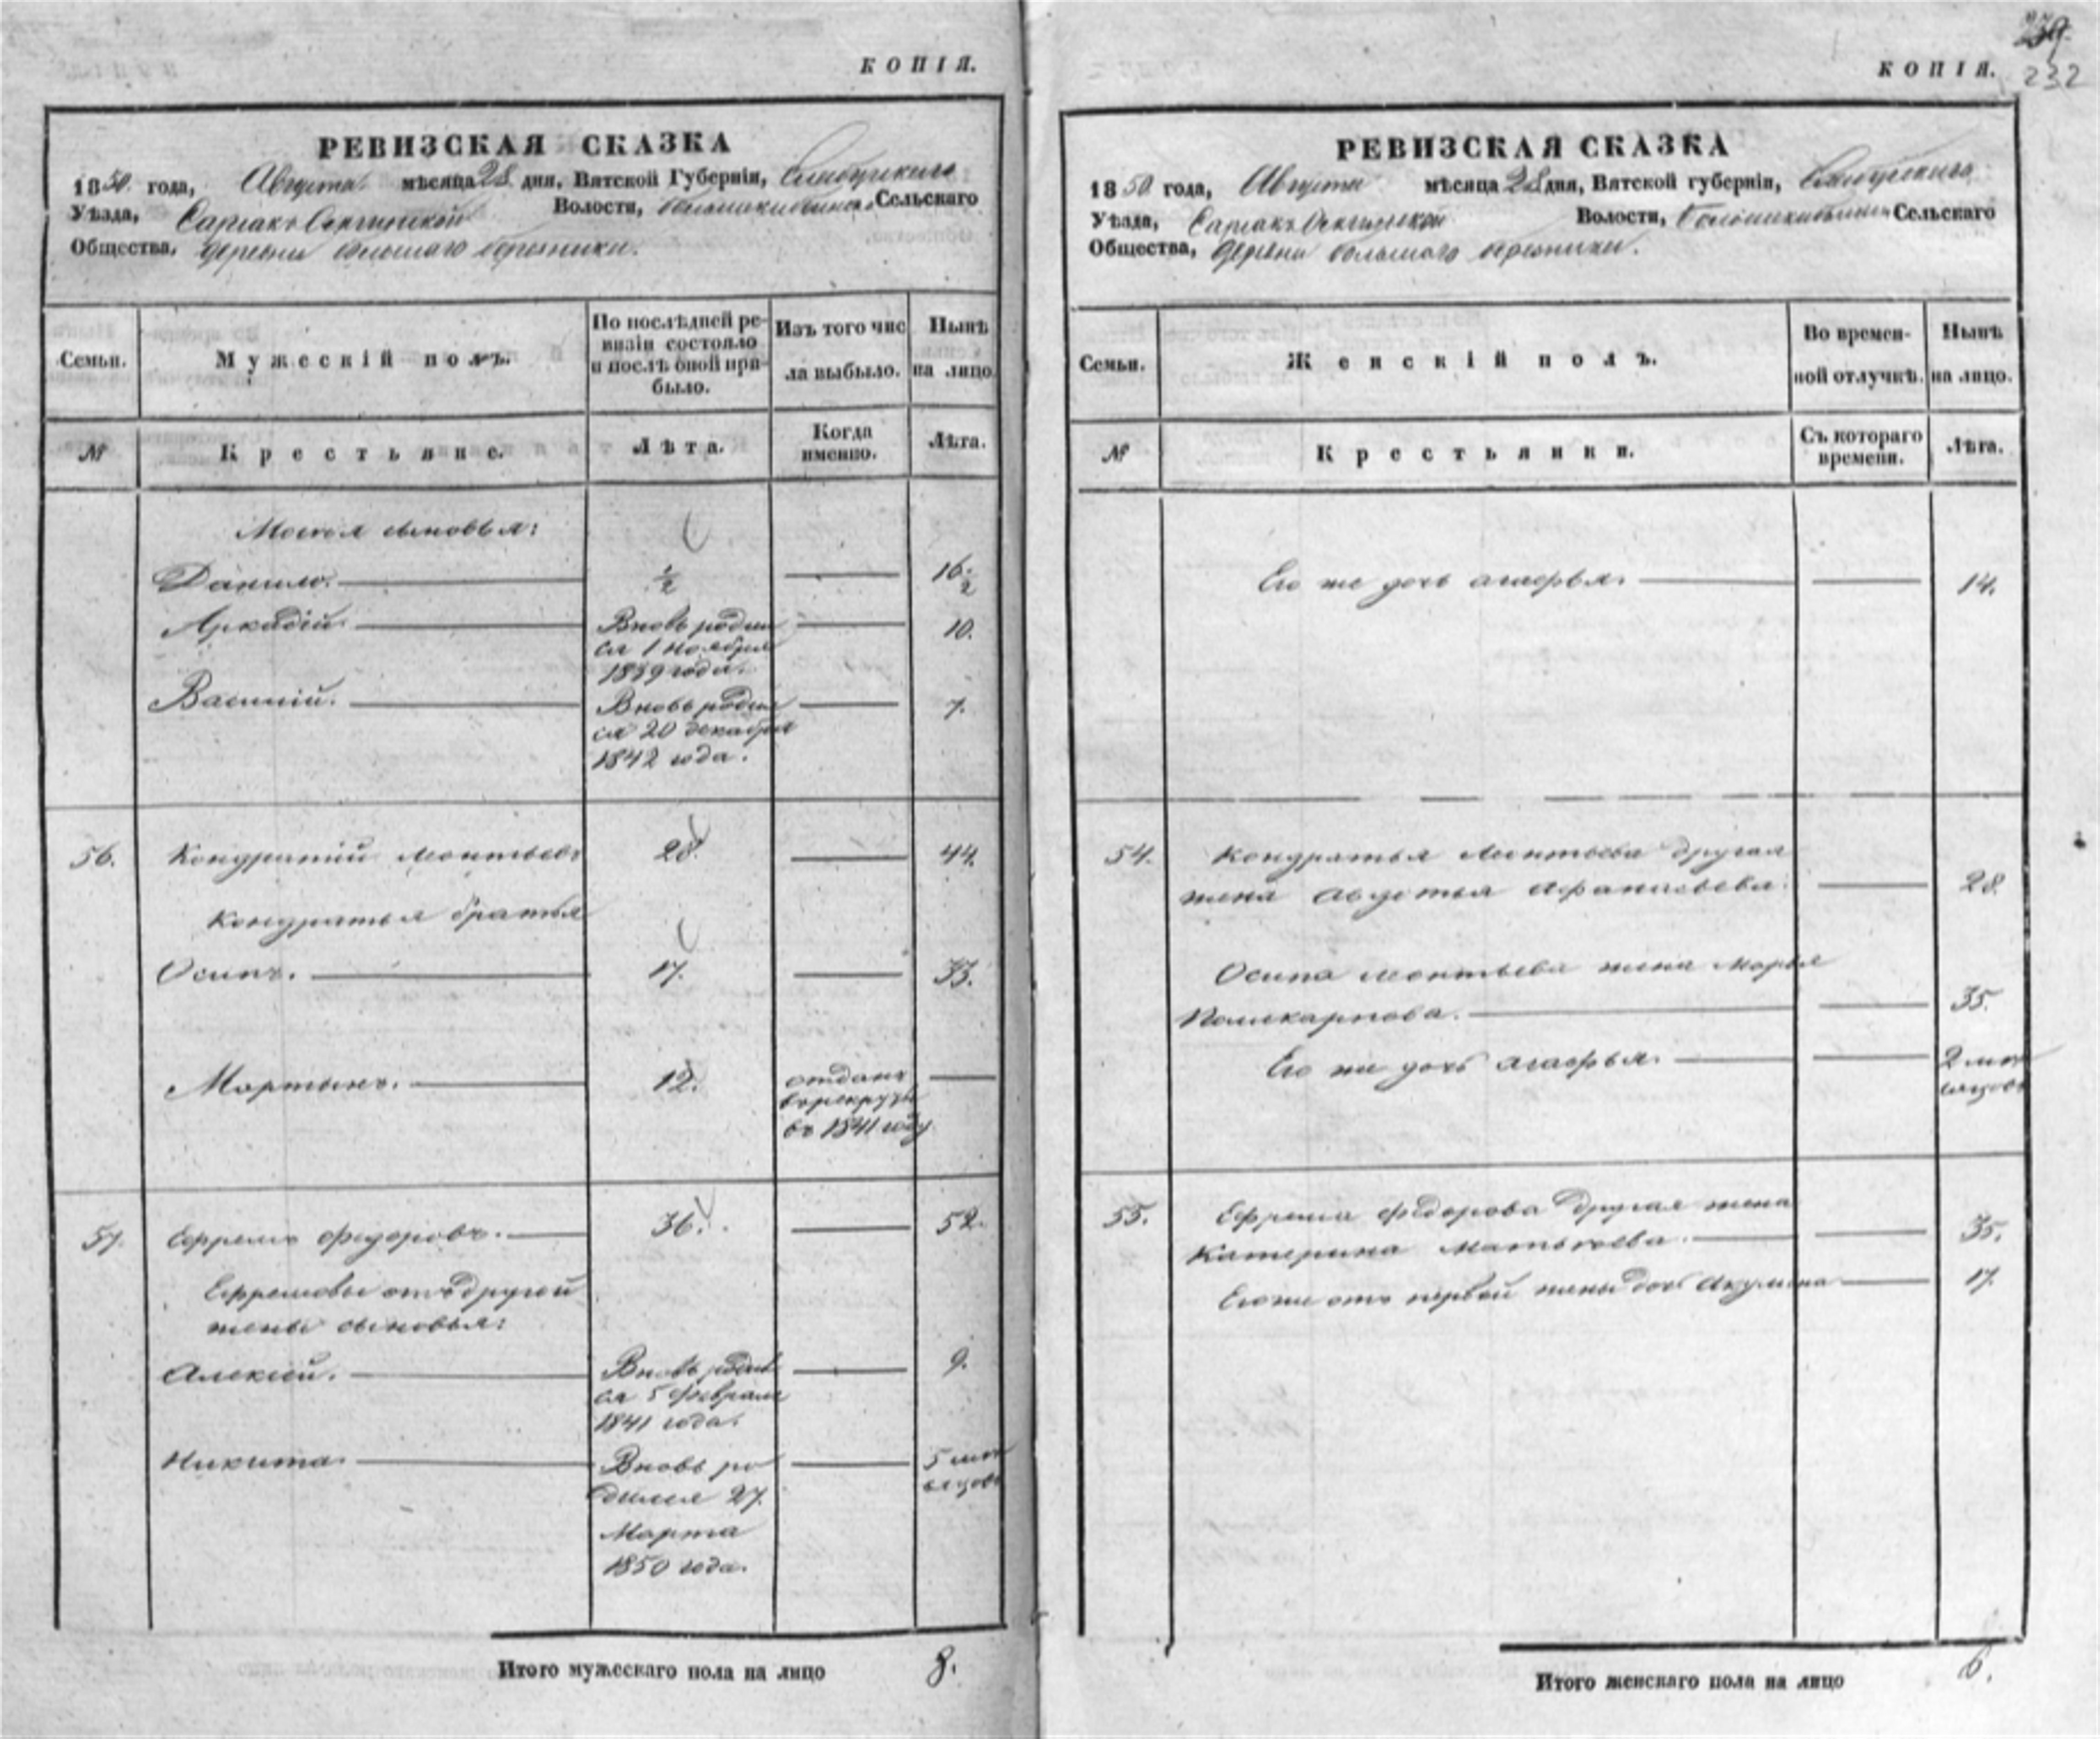 КОПІЯ.
РЕВИЗСКАЯ СКАЗКА
1850 года, Августа мѣсяца 28 дня, Вятской Губерніи, Елабужскаго
Уѣзда, Волости, Сельскаго
Общества, деревни большаго
Семьи.
Мужескій полъ.
По послѣдней ре-
визіи состояло
и послѣ оной при-
было.
Изъ того чис
ла выбыло.
Нынѣ
на лицо.
№
Крестьяне.
Лѣта.
Когда
именно.
Лѣта.
сыновья:
Данило. ½ 16½
Аркадій. Вновь родил 10.
ся 1 ноября
1839 года.
Василій. Вновь родил 7.
ся 20 декабря
1842 года.
56. Кондратій Леонтьевъ 28. 44.
Кондратья братья
Осипъ. 17. 33.
Мартынъ. 12. отданъ
въ рекруты
въ 1841 году
57. Ефремъ Федоровъ. 36. 52.
Ефремовы отъ другой
жены сыновья:
Алексей. Вновь родил 9.
ся 5 февраля
1841 года.
Никита. Вновь ро 5 мѣ
дился 27. сяцовъ
Марта
1850 года.
Итого мужескаго пола на лицо 8.
КОПІЯ. 232
РЕВИЗСКАЯ СКАЗКА
1850 года, Августа мѣсяца 28 дня, Вятской губерніи, Елабужскаго
Уѣзда, Волости, Сельскаго
Общества, деревни большаго
Семьи.
Женскій полъ.
Во времен-
ной отлучкѣ.
Нынѣ
на лицо.
№
Крестьянки.
Съ котораго
времени.
Лѣта.
Его же дочь агафья. 14.
54. Кондратья Леонтьева другая
жена авдотья Афанасьева. 28.
Осипа Леонтьева жена Марья
Поликарпова. 35.
Его же дочь агафья. 2 мѣ
сяцовъ
55. Ефрема Федорова другая жена
Катерина Матвѣева. 35.
Его же отъ первой жены дочь Акулина 17.
Итого женскаго пола на лицо 6.